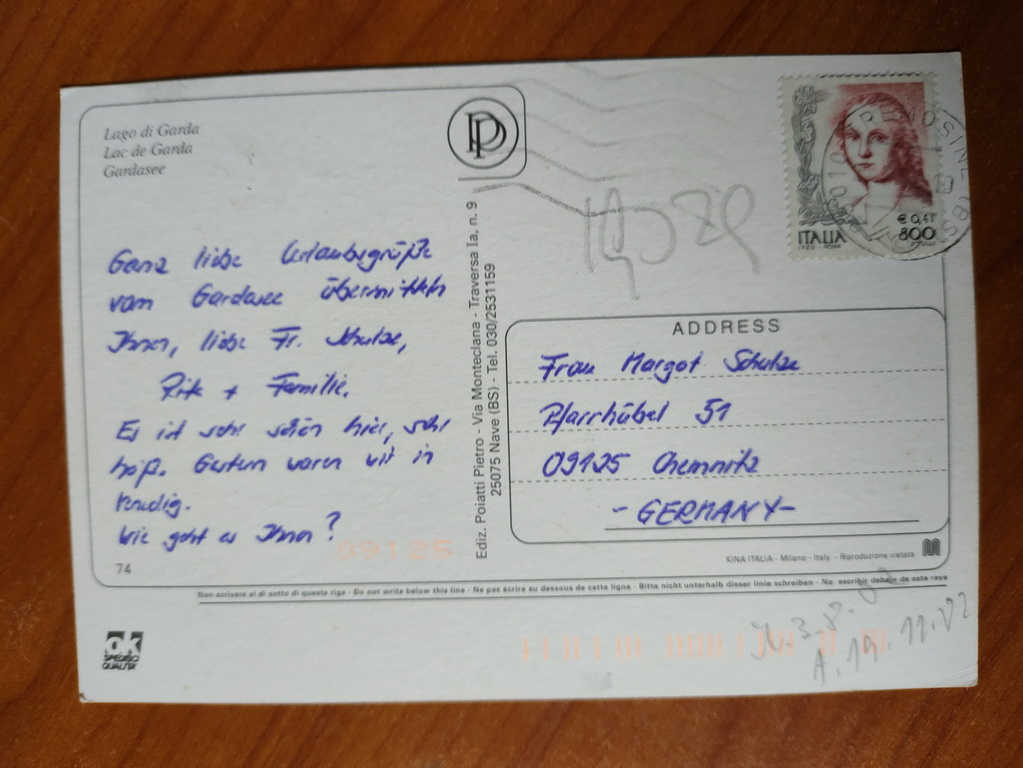 Lago di Garda
Lac de Garda
Gardasee
Ganz liebe Urlaubsgrüße
vom Gardasee übermitteln
Ihnen, liebe Fr. Schulze,
+ Familie.
Es ist sehr schön hier, sehr
heiß. Gestern waren wir in
Venedig.
Wie geht es Ihnen?
09125
74
OK
SPEDISCI
QUALITA'
PP
Ediz. Poiatti Pietro - Via Monteclana - Traversa Ia, n. 9
25075 Nave (BS) - Tel. 030/2531159
ITALIA
€ 0,41
800
TREMOSINE (BS)
ADDRESS
Frau Margot Schulze
Pfarrhübel 51
09125 Chemnitz
- GERMANY -
KINA ITALIA - Milano - Italy - Riproduzione vietata
Non scrivere al di sotto di questa riga - Do not write below this line - Ne pas écrire au dessous de cette ligne - Bitte nicht unterhalb dieser linie schreiben - No escribir debajo de esta raya
A. 19. 11. 02